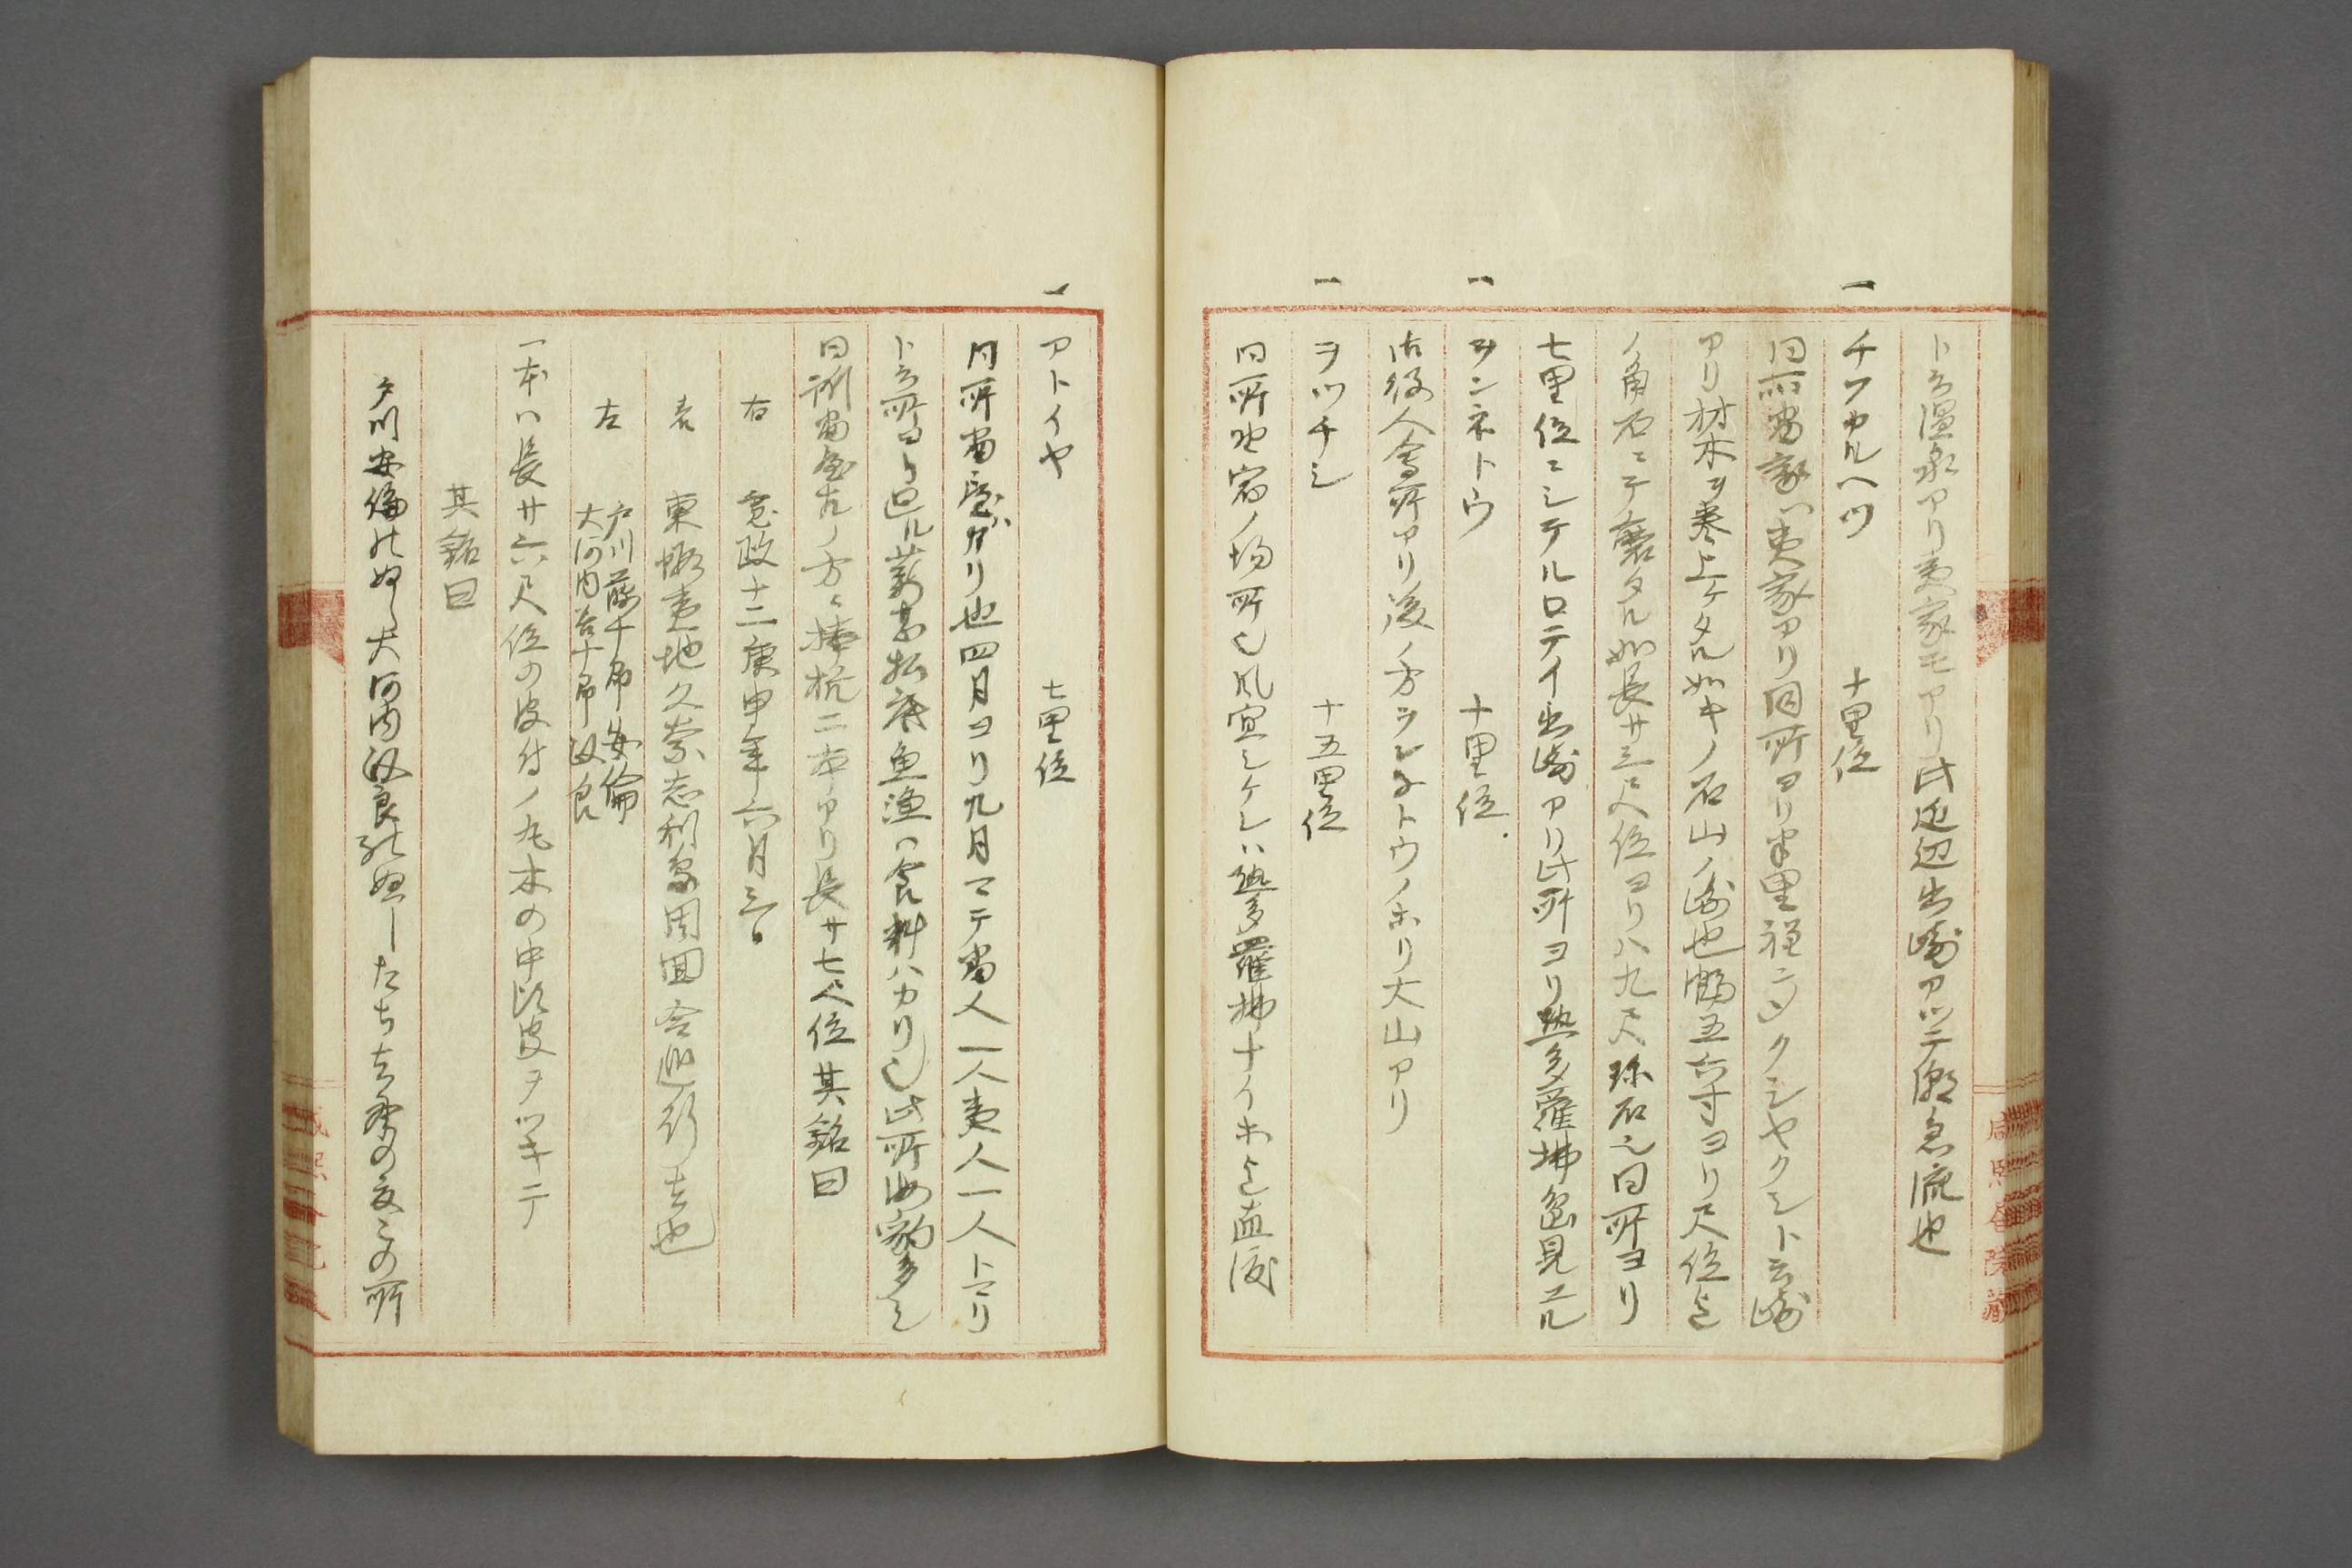 ト云温泉アリ夷家モアリ此近辺出崎アツテ潮急流也
一 チフカルヘツ 十里位
同所番家ハ夷家アリ同所ヨリ半里程ニシクシヤクシト云崎
アリ材木ヲ巻上ケタル如キノ石山ノ崎也幅五六寸ヨリ尺位迄
ノ角石ニテ磨タル如長サ三尺位ヨリ八九尺珎石也同所ヨリ
七里位ニシテルロテイ出崎アリ此所ヨリ無多羅拂島見エル
一 ヲンネトウ 十里位
御役人会所アリ後ノ方ヲンネトウノホリ大山アリ
一 ヲツチシ 十五里位
同所野宿ノ場所也風宜シケレハ無多羅拂ナイホ迄直渡
一 アトイヤ 七里位
同所番屋ハカリ也四月ヨリ九月マテ番人一人夷人一人トマリ
ト云所ヨリ廻ル薪甚払底魚漁ハ食料ハカリ也此所海豹多シ
同所番屋左ノ方ニ棒杭二本アリ長サ七尺位其銘曰
右 寛政十二庚申年六月三日
表 東蝦夷地久奈志利島周囲令巡行者也
左 戸川藤十郎安倫
大河内善十郎政良
一本ハ長サ六尺位の皮付ノ丸木の中江皮ヲツキテ
其銘曰
戸川安倫ぬし大河内政良ぬしたち